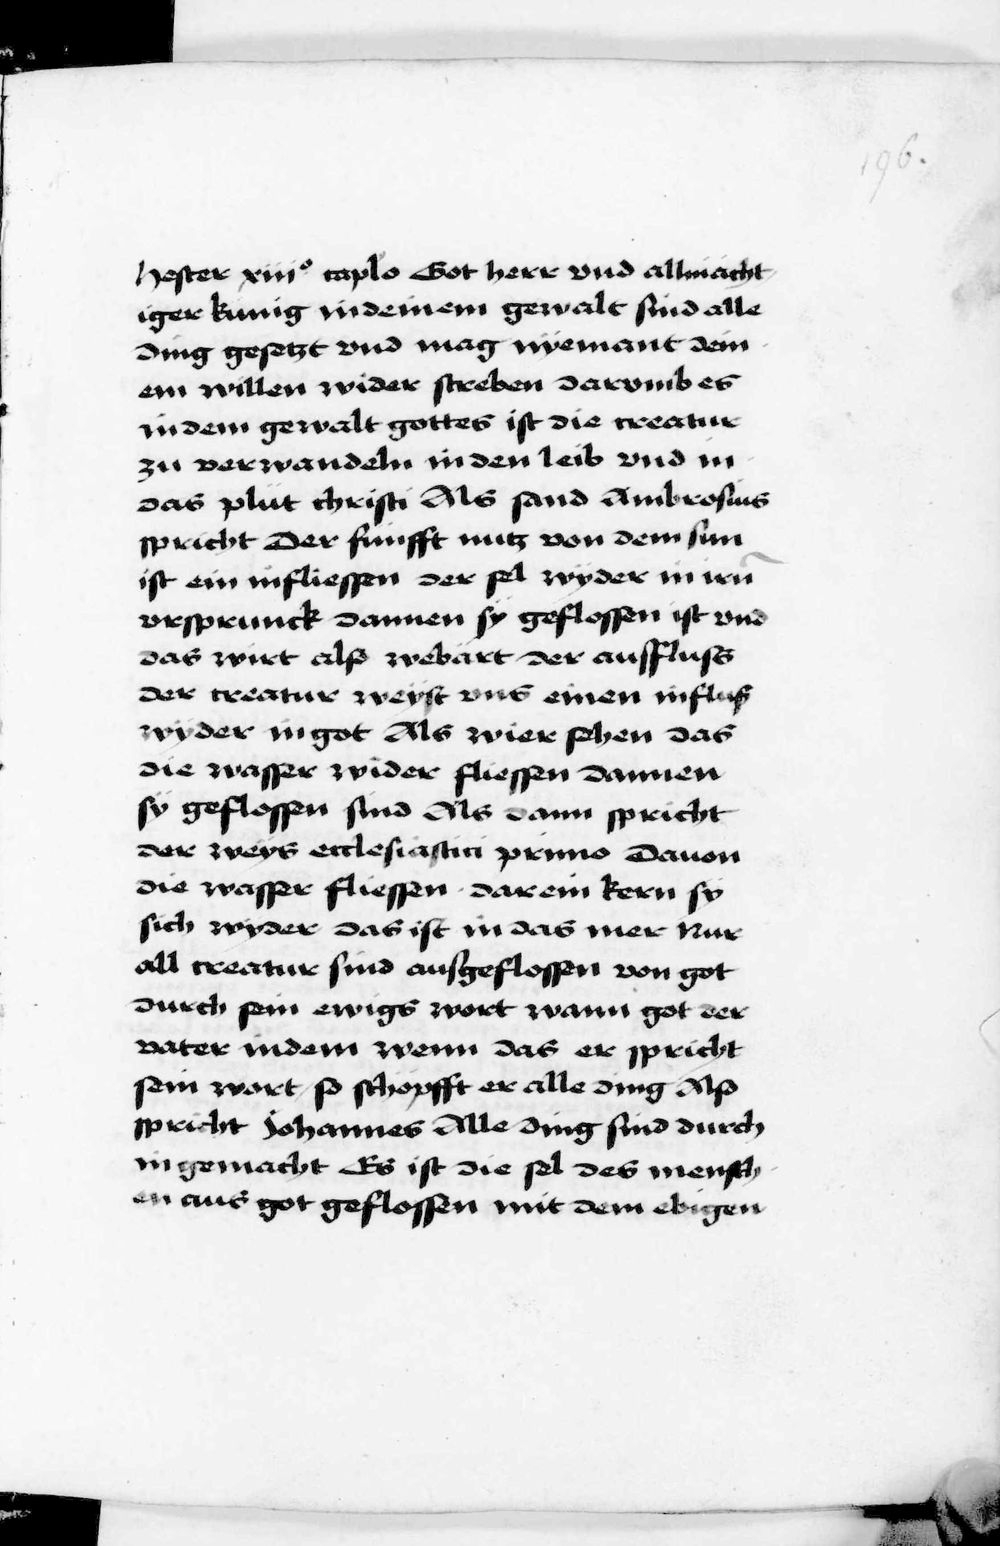 196.
Hester xiii° caplo Got herr vnd allmächt
iger künig in deinem gewalt sind alle
ding gesetzt vnd mag nÿemant dein
em willen wider streben darvmb es
in dem gewalt gottes ist die creatur
zu verwandeln in den leib vnd in
das plüt christi Als sand Ambrosius
spricht Der fünfft nutz von dem sun
ist ein infliessen der sel wÿder in irn̄
vrsprunck dannen sÿ geflossen ist vnd
das wirt also webärt der ausfluss
der creatur weÿst vns einen influß
wÿder in got Als wier sehen das
die wasser wider fliessen dannen
sÿ geflossen sind Als dann spricht
der weÿs ecclesiastici primo Dauon
die wasser fliessen dar ein kern sÿ
sich wÿder das ist in das mer Nur
all creatur sind ausgeflossen von got
durch sein ewigs wort wann got der
vater in dem wenn das er spricht
sein wort so schöpfft er alle ding Also
spricht Johannes Alle ding sind durch
in gemacht Es ist die sel des mensch
en aus got geflossen mit dem ebigen